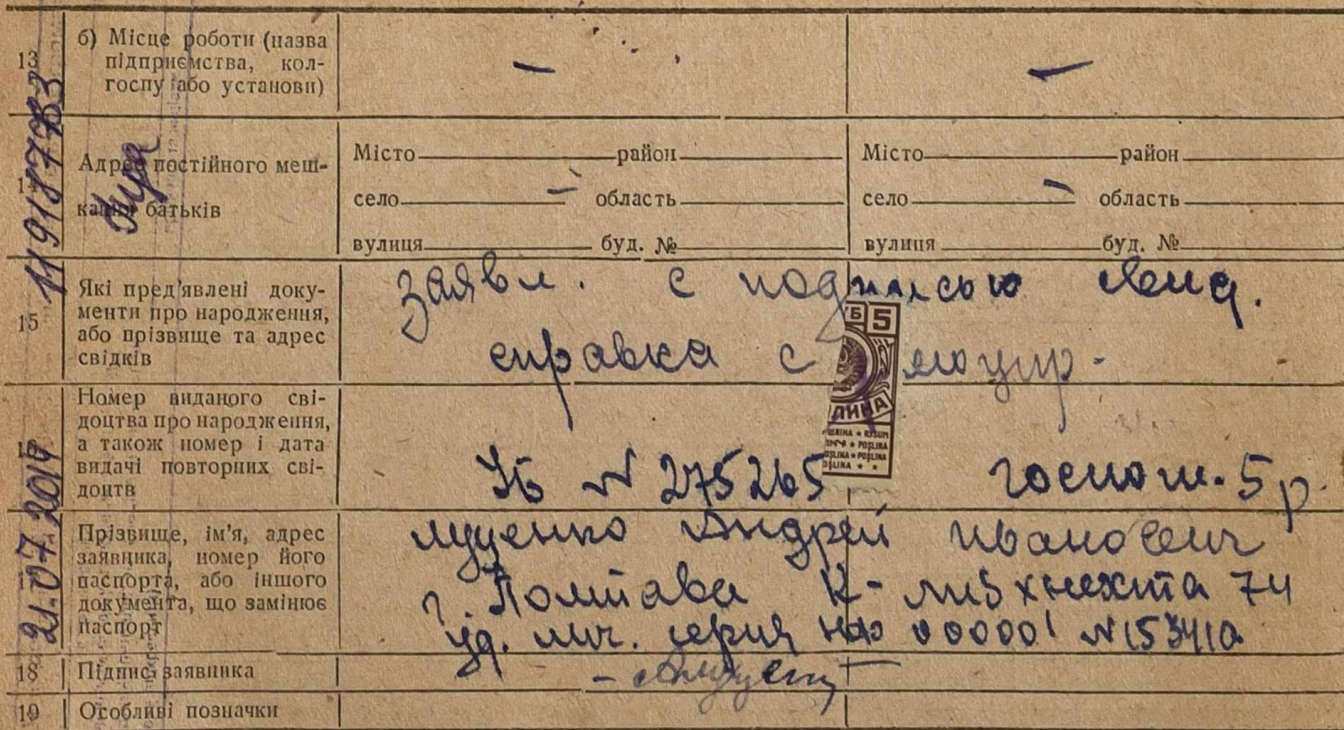 13
б) Місце роботи (назва
підприємства, кол-
госпу або установи)
—
—
14
Адреса постійного меш-
кання батьків
Місто район
село — область
вулиця буд. №
Місто район
село — область
вулиця буд. №
15
Які пред'явлені доку-
менти про народження,
або прізвище та адрес
свідків
заявл. с подписью свид.
справка с
Номер виданого сві-
доцтва про народження,
а також номер і дата
видачі повторних сві-
доцтв
№ 275265 госпош. 5 р.
5
ШЛИНА
POSLINA
Прізвище, ім'я, адрес
заявника, номер його
паспорта, або іншого
документа, що замінює
паспорт
Луценко Андрей Иванович
г. Полтава К-Либкнехта 74
уд. лич. серия 00000! № 153410
18
Підпис заявника
19
Особливі позначки
1191877783
21.07.2014